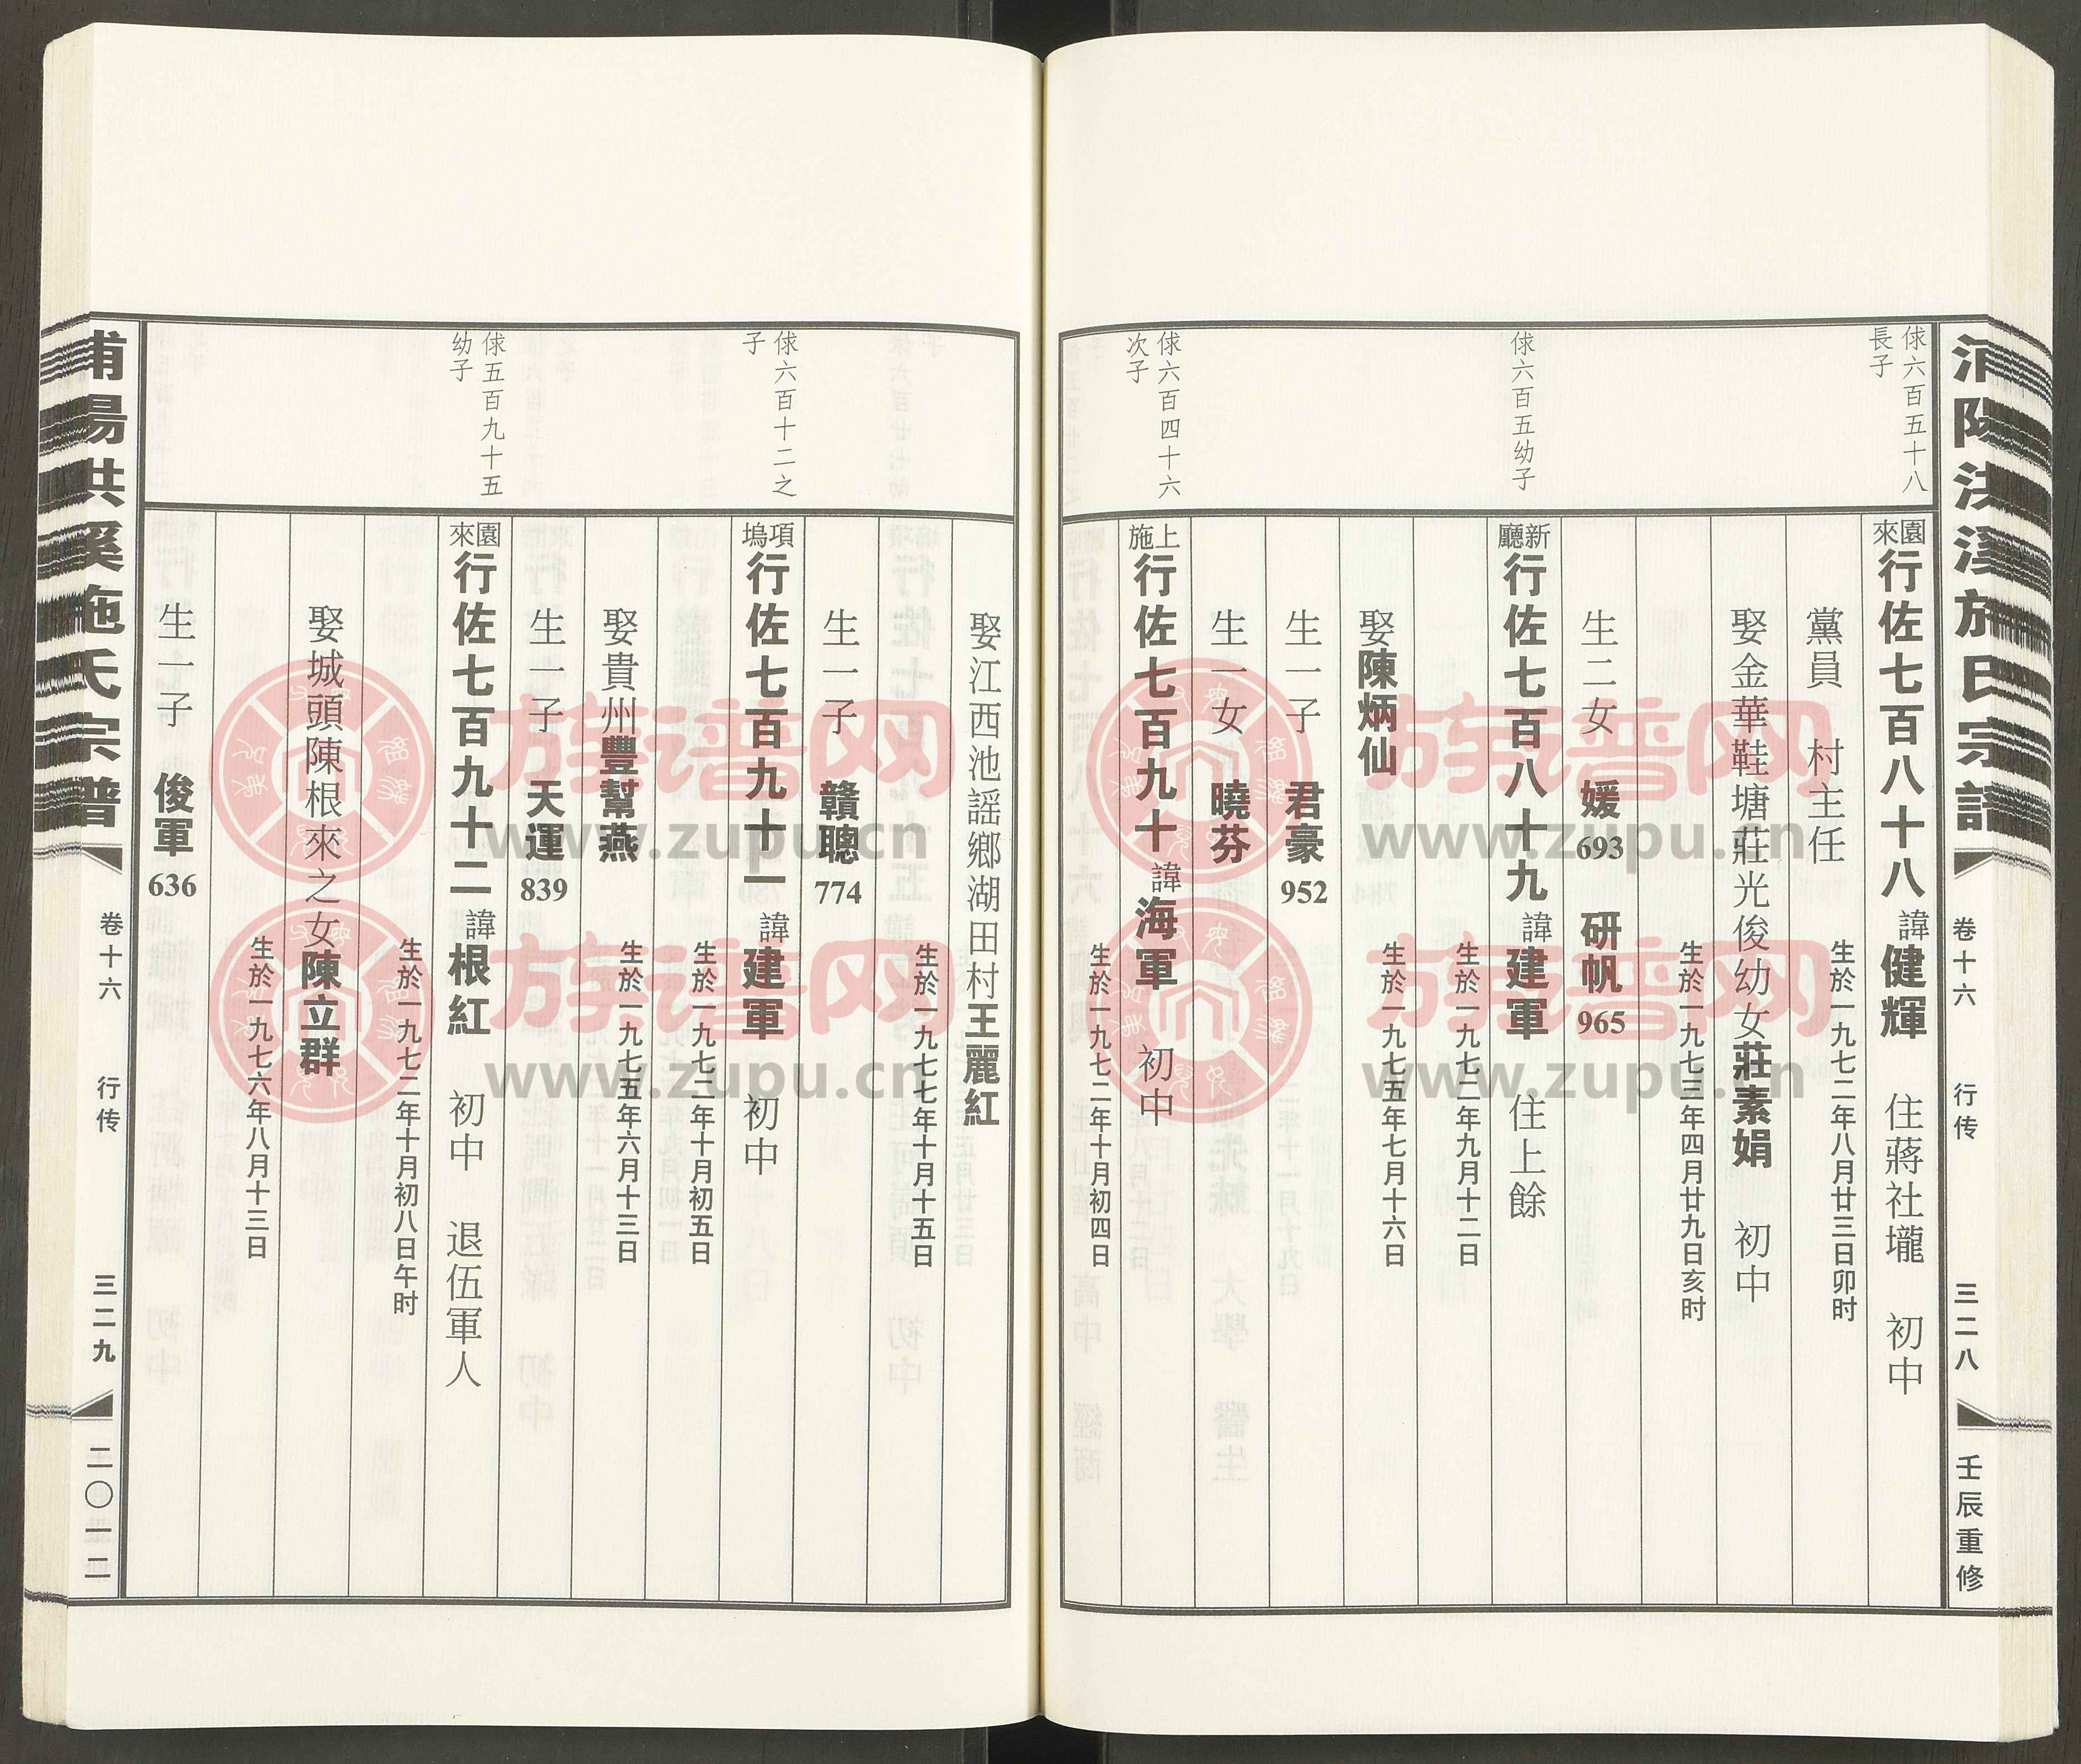 浦陽洪溪施氏宗譜
卷十六
行传
三二八
壬辰重修
俅六百五十八
長子
園來行佐七百八十八諱健輝 住蔣社壠 初中
生於一九七二年八月廿三日卯时
黨員 村主任
娶金華鞋塘莊光俊幼女莊素娟 初中
生於一九七三年四月廿九日亥时
生二女 媛693 研帆965
俅六百五幼子
新廳行佐七百八十九諱建軍 住上餘
生於一九七二年九月十二日
娶陳炳仙
生於一九七五年七月十六日
生一子 君豪952
生一女 曉芬
俅六百四十六
次子
上施行佐七百九十諱海軍 初中
生於一九七二年十月初四日
娶江西池謡鄉湖田村王麗紅
生於一九七七年十月十五日
生一子 贛聰774
俅六百十二之
子
項塢行佐七百九十一諱建軍 初中
生於一九七二年十月初五日
娶貴州豐幫燕
生於一九七五年六月十三日
生一子 天運839
俅五百九十五
幼子
園來行佐七百九十二諱根紅 初中 退伍軍人
生於一九七二年十月初八日午时
娶城頭陳根來之女陳立群
生於一九七六年八月十三日
生一子 俊軍636
浦陽洪溪施氏宗譜
卷十六
行传
三二九
二〇一二
族谱网
www.zupu.cn
族谱网
www.zupu.cn
族谱网
www.zupu.cn
族谱网
www.zupu.cn